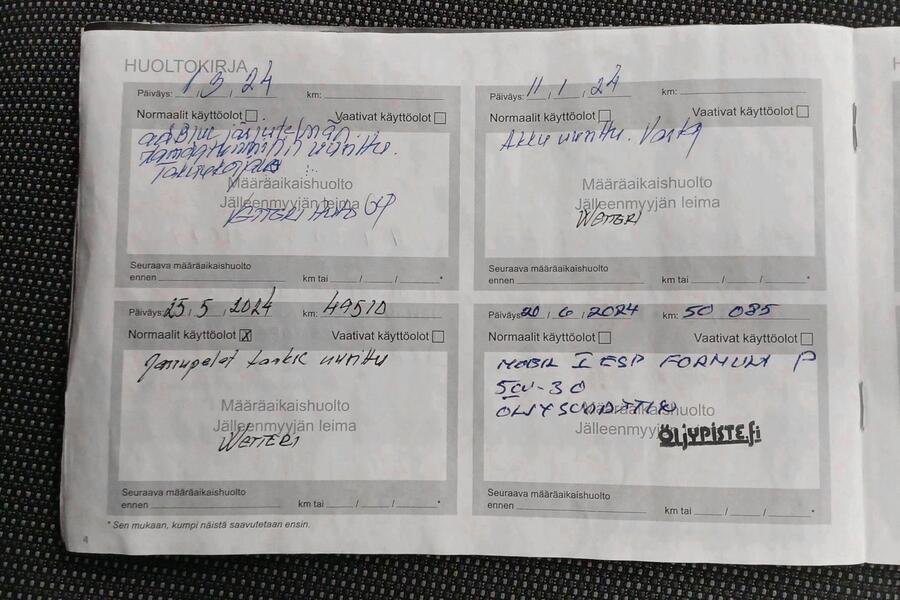 HUOLTOKIRJA
Päiväys: 1 , 3 , 24 km:
Normaalit käyttöolot Vaativat käyttöolot
adBlue
uusittu.
Määräaikaishuolto
Jälleenmyyjän leima
Seuraava määräaikaishuolto
ennen km tai / / / *
Päiväys: 11 , 1 , 24 km:
Normaalit käyttöolot Vaativat käyttöolot
Akku uusittu. Varta
Määräaikaishuolto
Jälleenmyyjän leima
WETTERI
Seuraava määräaikaishuolto
ennen km tai / / / *
Päiväys: 25 , 5 , 2024 km: 49510
Normaalit käyttöolot X Vaativat käyttöolot
Jarrupalat uusittu
Määräaikaishuolto
Jälleenmyyjän leima
WETTERI
Seuraava määräaikaishuolto
ennen km tai / / / *
Päiväys: 20 , 6 , 2024 km: 50 085
Normaalit käyttöolot Vaativat käyttöolot
MOBIL 1 ESP FORMULA P
5W-30
Määräaikaishuolto
Jälleenmyyjän leima
ÖLJYPISTE.fi
Seuraava määräaikaishuolto
ennen km tai / / / *
* Sen mukaan, kumpi näistä saavutetaan ensin.
4